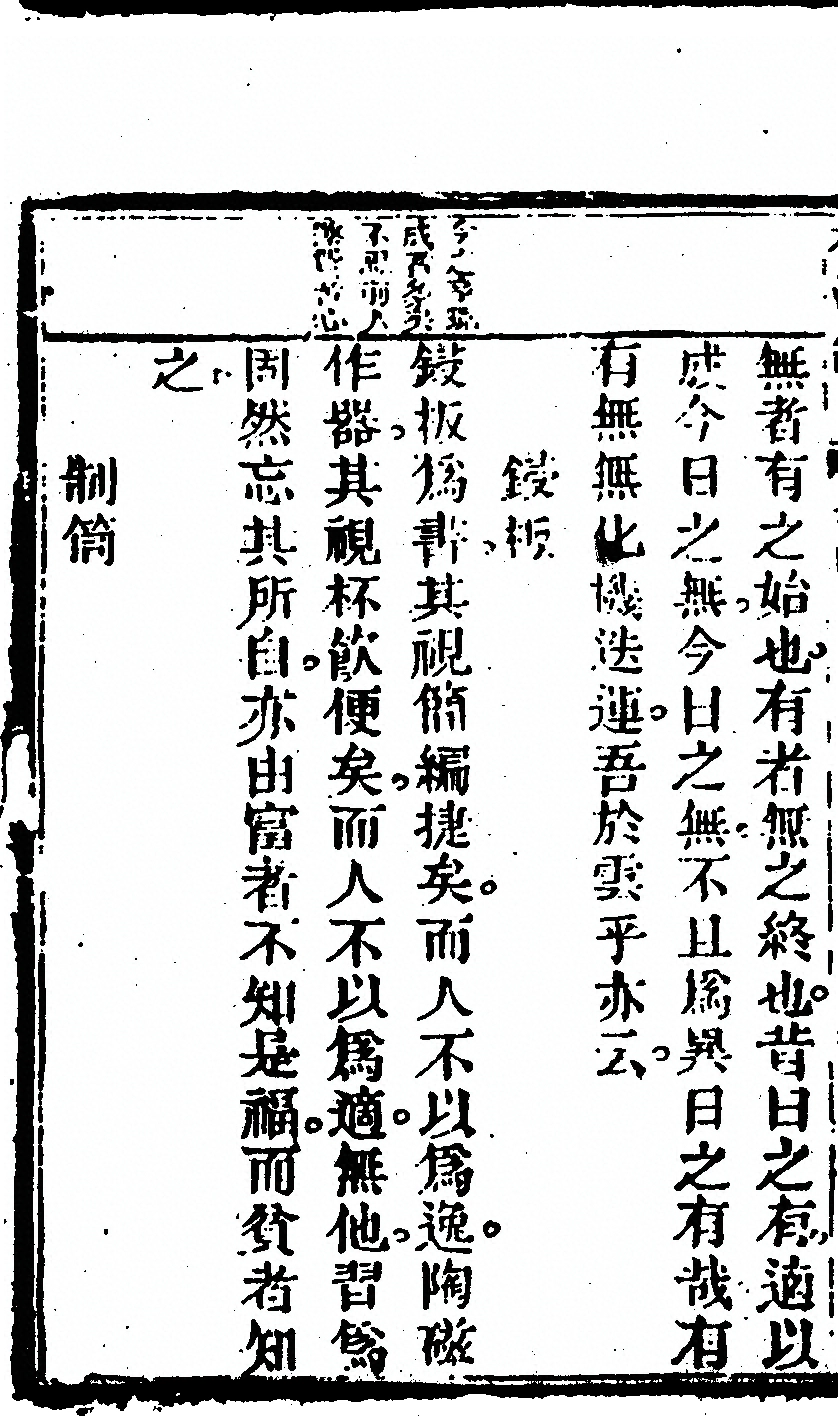 無者有之始也有者無之終也昔日之有適以
成今日之無今日之無不且爲異日之有哉有
有無無化機迭運吾於雲乎亦云
鋟板
鋟板爲書其視簡編捷矣而人不以爲逸陶磁
作器其視杯飲便矣而人不以爲適無他習爲
固然忘其所自亦由富者不知是福而貧者知
之
制筒
不思前人